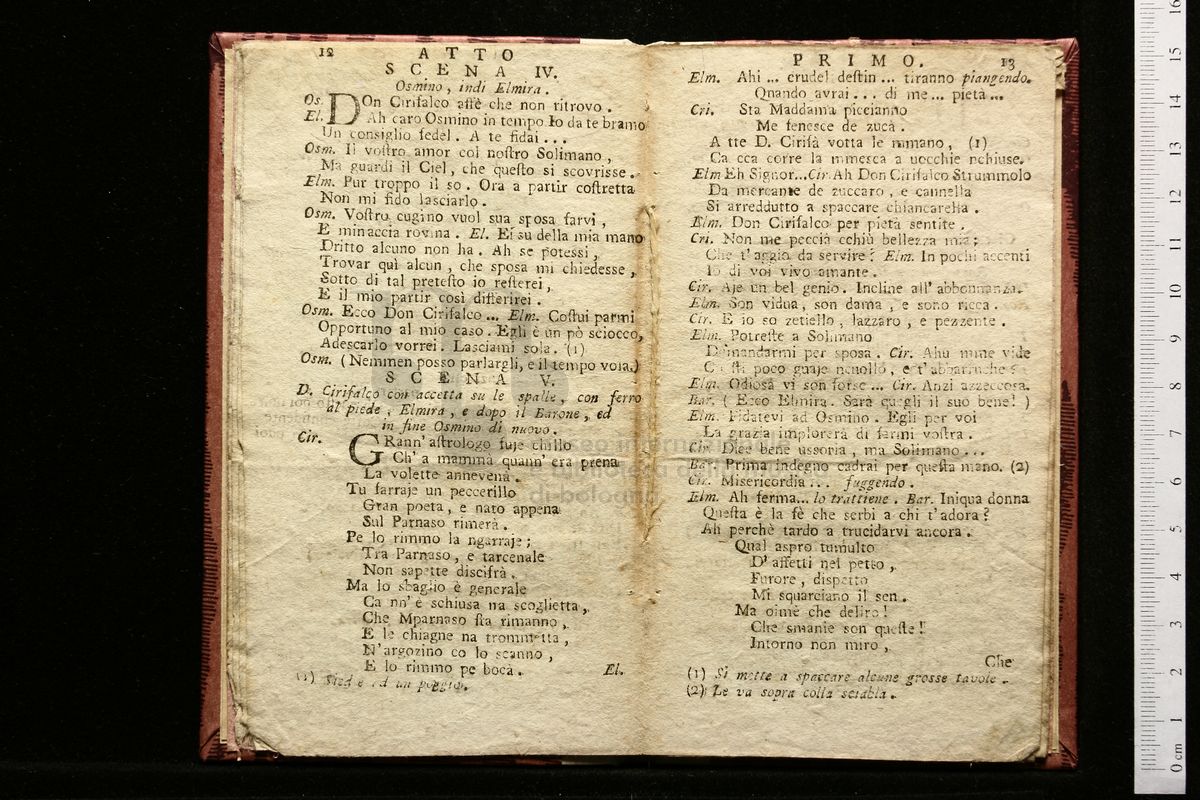 12 ATTO
SCENA IV.
Osmino, indi Elmira.
Os. DOn Cirifalco affè che non ritrovo.
El. Ah caro Osmino in tempo. Io da te bramo
Un consiglio fedel. A te fidai...
Osm. Il vostro amor col nostro Solimano,
Ma guardi il Ciel, che questo si scovrisse.
Elm. Pur troppo il so. Ora a partir costretta
Non mi fido lasciarlo.
Osm. Vostro cugino vuol sua sposa farvi,
E minaccia rovina. El. Ei su della mia mano
Dritto alcuno non ha. Ah se potessi,
Trovar quì alcun, che sposa mi chiedesse,
Sotto di tal pretesto io resterei,
E il mio partir così differirei.
Osm. Ecco Don Cirifalco... Elm. Costui parmi
Opportuno al mio caso. Egli è un pò sciocco,
Adescarlo vorrei. Lasciami sola. (1)
Osm. (Nemmen posso parlargli, e il tempo vola.)
SCENA V.
D. Cirifalco con accetta su le spalle, con ferro
al piede, Elmira, e dopo il Barone, ed
in fine Osmino di nuovo.
Cir. GRann' astrologo fuje chillo
Ch' a mamma quann' era prena
La volette annevenà.
Tu farraje un peccerillo
Gran poeta, e nato appena
Sul Parnaso rimerà.
Pe lo rimmo la ngarraje;
Tra Parnaso, e tarcenale
Non sapette discifrà.
Ma lo sbaglio è generale
Ca nn' è schiusa na scoglietta,
Che Mparnaso sta rimanno,
E le chiagne na trommetta,
N' argozino co lo scanno,
E lo rimmo pe boca.
El.
(1) Siede ad un poggio.
PRIMO. 13
Elm. Ahi... crudel destin... tiranno piangendo.
Quando avrai... di me... pietà...
Cri. Sta Maddama piccianno
Me fenesce de zucà.
A tte D. Cirifà votta le mmano, (1)
Ca cca corre la mmesca a uocchie nchiuse.
Elm Eh Signor... Cir. Ah Don Cirifalco Strummolo
Da mercante de zuccaro, e cannella
Si arreddutto a spaccare chiancarella.
Elm. Don Cirifalco per pietà sentite.
Cri. Non me peccià cchiù bellezza mia;
Che t' aggio da servire? Elm. In pochi accenti
Io di voi vivo amante.
Cir. Aje un bel genio. Incline all' abbonnanza.
Elm. Son vidua, son dama, e sono ricca.
Cir. E io so zetiello, lazzaro, e pezzente.
Elm. Potreste a Solimano
Dimandarmi per sposa. Cir. Ahu mme vide
Co sti poco guaje ncuollo, e t' abbarruche?
Elm. Odiosa vi son forse... Cir. Anzi azzeccosa.
Bar. (Ecco Elmira. Sarà quegli il suo bene!)
Elm. Fidatevi ad Osmino. Egli per voi
La grazia implorerà di farmi vostra.
Cir. Dice bene ussoria, ma Solimano...
Bar. Prima indegno cadrai per questa mano. (2)
Cir. Misericordia... fuggendo.
Elm. Ah ferma... lo trattiene. Bar. Iniqua donna
Questa è la fè che serbi a chi t' adora?
Ah perchè tardo a trucidarvi ancora.
Qual aspro tumulto
D' affetti nel petto,
Furore, dispetto
Mi squarciano il sen.
Ma oimè che deliro!
Che smanie son queste!
Intorno non miro,
Che
(1) Si mette a spaccare alcune grosse tavole.
(2) Le va sopra colla sciabla.
museo internazionale
di bologna
0 cm 1 2 3 4 5 6 7 8 9 10 11 12 13 14 15 16